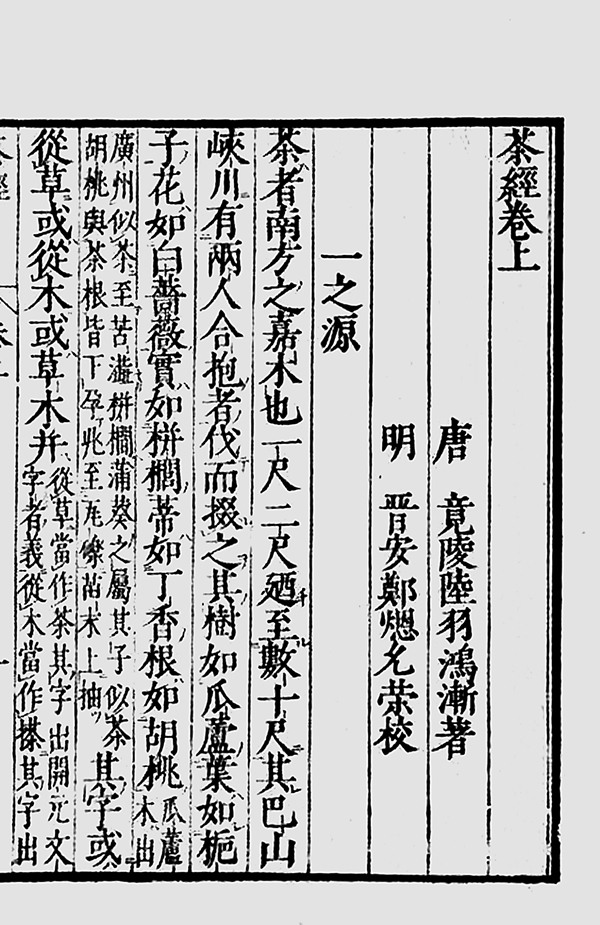 茶經卷上
唐 竟陵陸羽鴻漸著
明 晋安鄭熜允荣校
一之源
茶者南方之嘉木也一尺二尺廼至數十尺其巴山
峽川有兩人合抱者伐而掇之其樹如瓜蘆葉如梔
子花如白薔薇實如栟櫚蒂如丁香根如胡桃瓜蘆木出
廣州似茶至苦澁栟櫚蒲葵之屬其子似茶胡桃與茶根皆下孕兆至瓦礫苗木上抽其字或
從草或從木或草木并從草當作茶其字出開元文字者義從木當作搽其字出